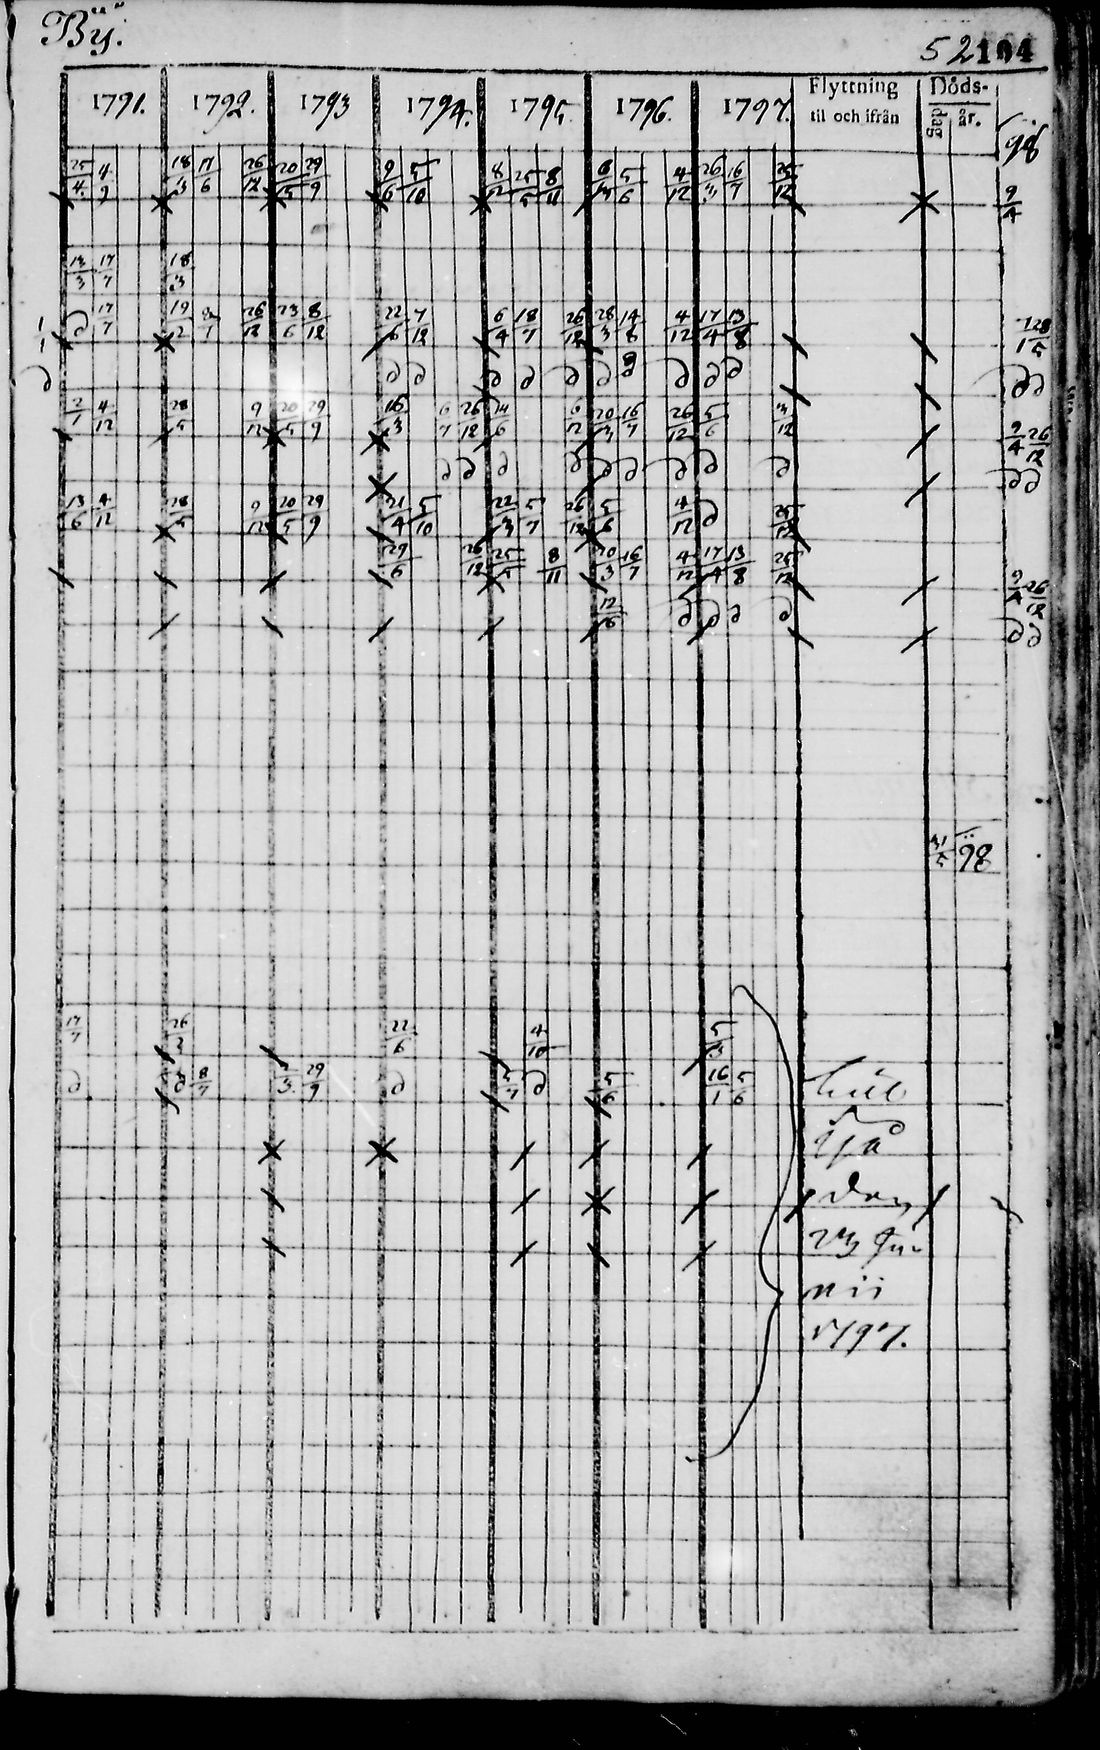 Bÿ.
52 104
1791. 1792. 1793 1794. 1795. 1796. 1797. Flyttning til och ifrån Döds- dag år. 98
25/4 4/9 18/3 17/6 26/12 20/5 29/9 9/6 5/10 8/12 25/5 8/11 6/3 5/6 4/12 26/3 16/7 25/12 9/4
13/3 17/7 18/3
d 17/7 19/2 8/1 26/12 23/6 8/12 22/6 7/12 6/4 18/7 26/12 28/3 14/8 4/12 17/4 13/8 28/5
d d d d d d d d d d d d
2/1 4/12 28/5 9/12 20/5 29/9 16/3 6/7 26/12 14/6 6/12 20/3 16/7 26/12 5/6 3/12 9/4 26/12
d d d d d d d d d d d
13/6 4/12 28/5 9/12 20/5 29/9 21/4 5/10 22/3 5/7 26/12 5/6 4/12 d 25/12
29/6 26/12 25/5 8/11 20/3 16/7 4/12 17/4 13/8 25/12 9/4 26/12
12/6 d d d d d d
31/5 98
17/7 26/2 22/6 4/10 5/3
d d 8/7 2/3 29/9 d 5/7 d 5/6 16/1 5/6
den
nii
1797.